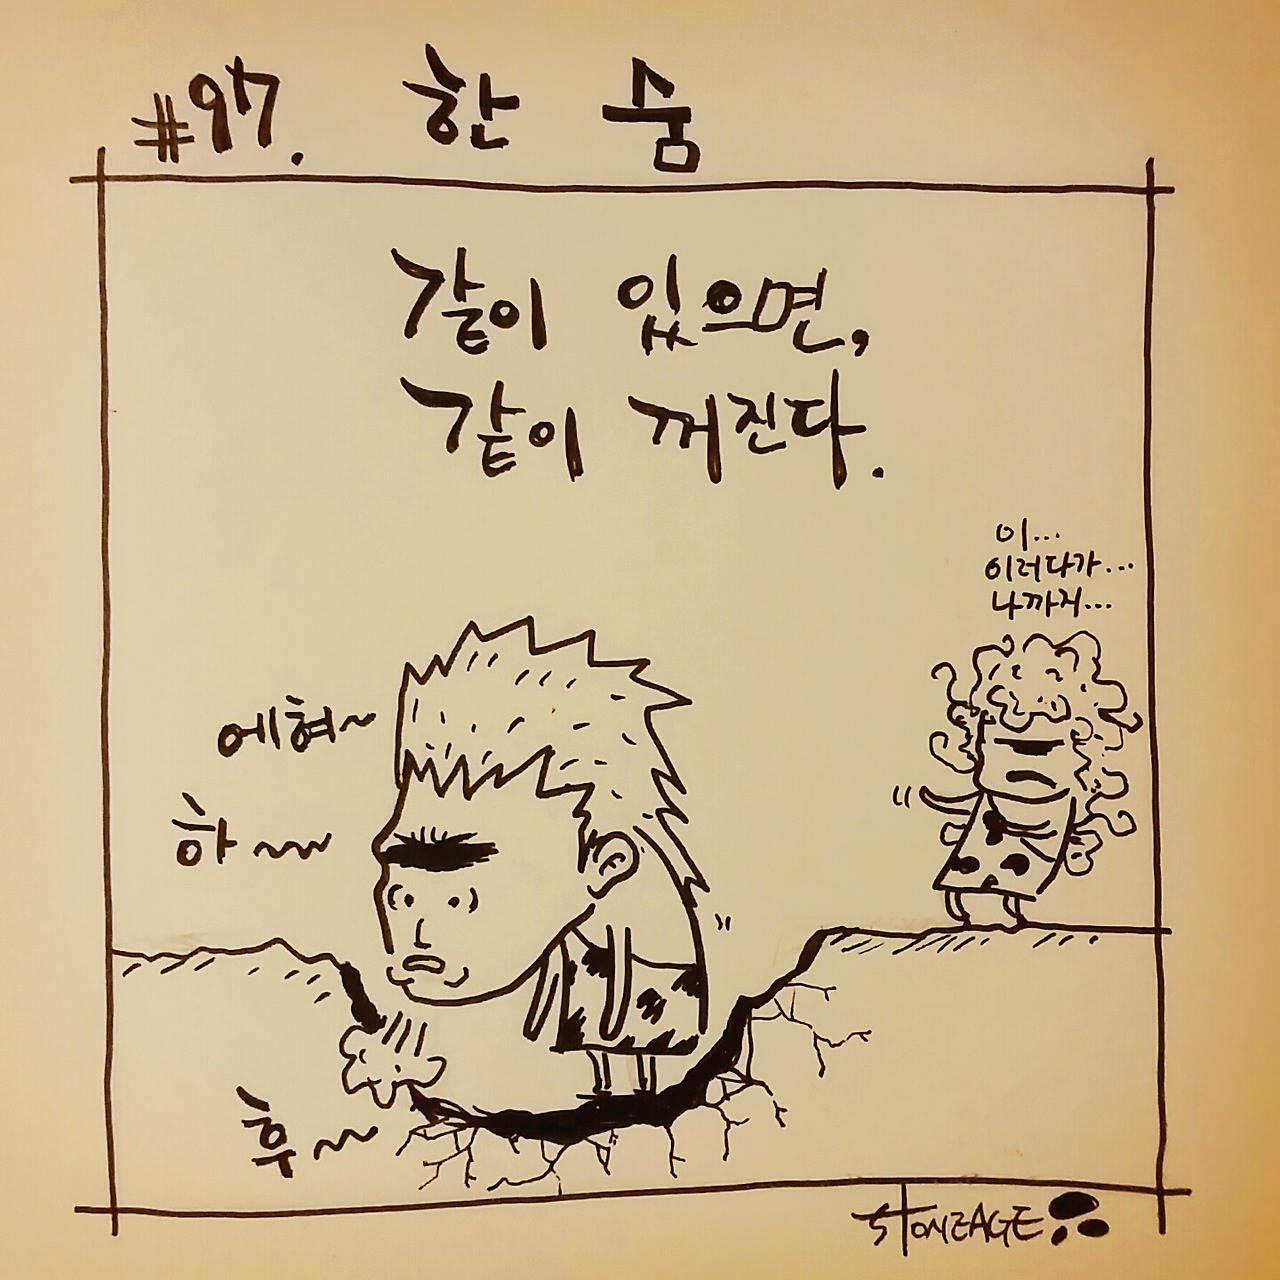 #97. 한숨
같이 있으면,
같이 꺼진다.
이...
이러다가...
나까지...
에혀~
하~
후~
STONEAGE